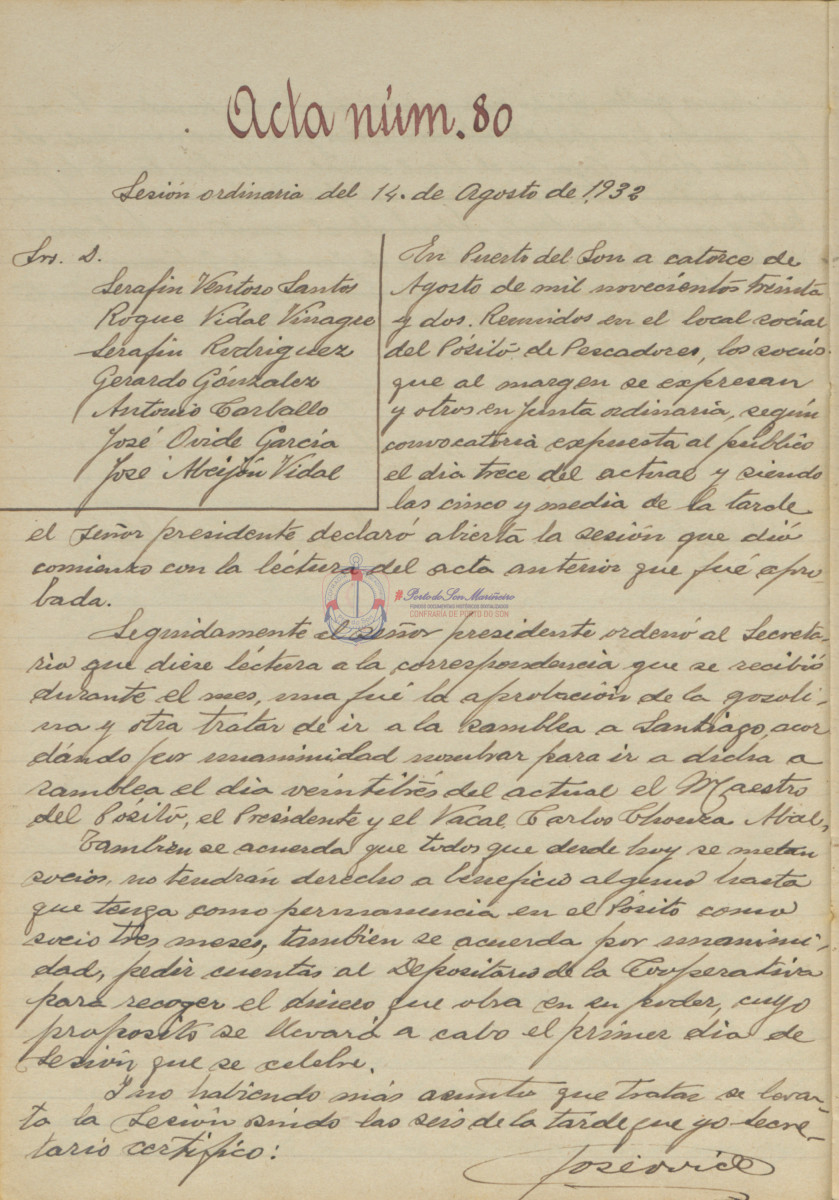 Acta núm. 80
Sesión ordinaria del 14 de Agosto de 1932
Srs. D.
Serafin Ventoso Santos
Roque Vidal Vinagre
Serafin Rodriguez
Gerardo Gónzalez
Antonio Carballo
José Ovide García
José Abeijón Vidal
En Puerto del Son a catorce de
Agosto de mil novecientos treinta
y dos. Reunidos en el local social
del Pósito de Pescadores, los socios
que al margen se expresan
y otros en Junta ordinaria, según
convocatoria expuesta al publico
el dia trece del actual y siendo
las cinco y media de la tarde
el señor presidente declaró abierta la sesión que dió
comienzo con la léctura del acta anterior que fué apro-
bada.
# Porto do Son Mariñeiro
FONDOS DOCUMENTAIS HISTÓRICOS DIXITALIZADOS
CONFRARÍA DE PORTO DO SON
Seguidamente el señor presidente ordenó al Secreta-
rio que diese léctura a la correspondencia que se recibió
durante el mes, una fué la aprobación de la gosoli-
na y otra tratar de ir a la samblea a Santiago, acor
dándo por unanimidad nombrar para ir a dicha a
samblea el dia veintitrés del actual el Maestro
del Pósito, el Presidente y el Vacal Carlos Abal,
Tambien se acuerda que todos que desde hoy se metan
socios, no tendrán derecho a beneficio alguno hasta
que tenga como permanencia en el Pósito como
socio tres meses, tambien se acuerda por unanimi-
dad, pedir cuentas al Depositario de la Cooperativa
para recoger el dinero que obra en su poder, cuyo
proposito se llevará a cabo el primer dia de
Sesión que se celebre.
I no habiendo más asuntos que tratar se levan-
ta la Sesión sindo las seis de la tarde que yo secre-
tario certifico:
José Ovide